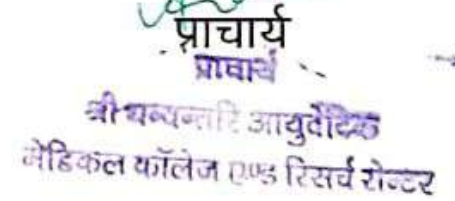 प्राचार्य
प्राचार्य
श्री धन्वन्तरि आयुर्वेदिक
मेडिकल कॉलेज एण्ड रिसर्च सेन्टर